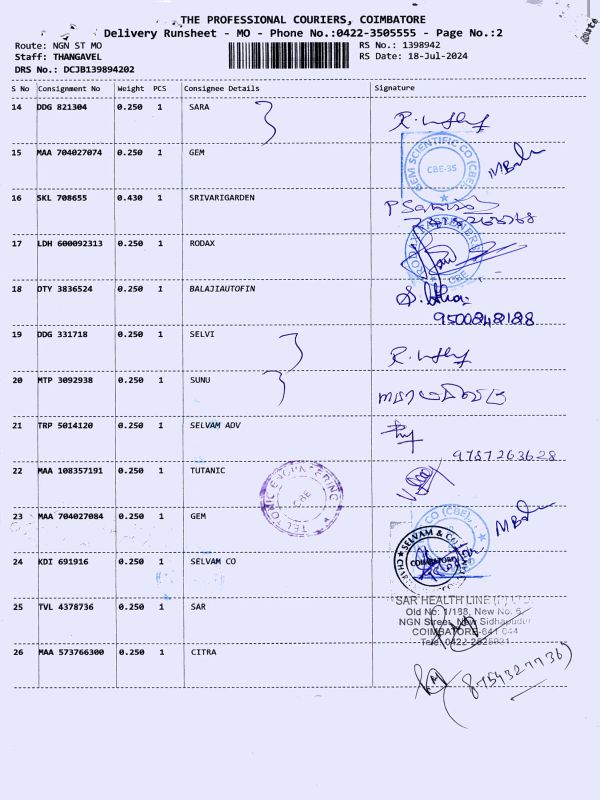 THE PROFESSIONAL COURIERS, COIMBATORE
Delivery Runsheet - MO - Phone No.:0422-3505555 - Page No.:2
Route: NGN ST MO
Staff: THANGAVEL
DRS No.: DCJB139894202
RS No.: 1398942
RS Date: 18-Jul-2024
S No Consignment No Weight PCS Consignee Details Signature
14 DDG 821304 0.250 1 SARA
15 MAA 704027074 0.250 1 GEM
GEM SCIENTIFIC CO (CBE)
CBE-35
16 SKL 708655 0.430 1 SRIVARIGARDEN
17 LDH 600092313 0.250 1 RODAX
RODAX FASTENERS
CBE
18 OTY 3836524 0.250 1 BALAJIAUTOFIN
9500848188
19 DDG 331718 0.250 1 SELVI
20 MTP 3092938 0.250 1 SUNU
21 TRP 5014120 0.250 1 SELVAM ADV
9787263628
22 MAA 108357191 0.250 1 TUTANIC
CBE
23 MAA 704027084 0.250 1 GEM
CO (CBE)
24 KDI 691916 0.250 1 SELVAM CO
SELVAM & CO
COIMBATORE
25 TVL 4378736 0.250 1 SAR
SAR HEALTH LINE
Old No: 1/188, New No. 6,
NGN Street, New Sidhapudur
COIMBATORE-641 044
Tele: 0422
26 MAA 573766300 0.250 1 CITRA